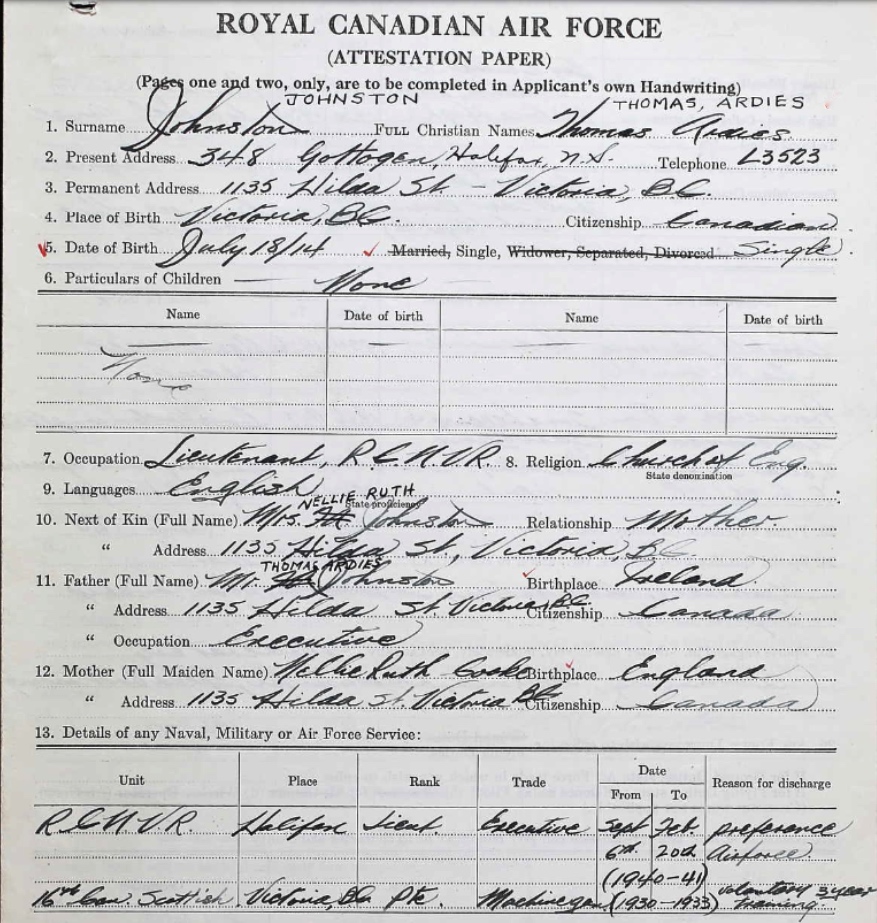 ROYAL CANADIAN AIR FORCE
(ATTESTATION PAPER)
(Pages one and two, only, are to be completed in Applicant's own Handwriting)
JOHNSTON THOMAS, ARDIES
1. Surname Johnston FULL Christian Names Thomas Ardies
2. Present Address 348 Gottogen, Halifax, N.S. Telephone L3523
3. Permanent Address 1135 Hilda St. - Victoria, B.C.
4. Place of Birth Victoria, B.C. Citizenship Canadian
5. Date of Birth July 18/14 Married, Single, Widower, Separated, Divorced Single
6. Particulars of Children — None —
Name Date of birth Name Date of birth
None
7. Occupation Lieutenant, R.C.N.V.R. 8. Religion Church of Eng.
State denomination
9. Languages English
NELLIE RUTH State proficiency
10. Next of Kin (Full Name) Mrs. Johnston Relationship Mother.
" Address 1135 Hilda St, Victoria, B.C.
THOMAS ARDIES
11. Father (Full Name) Mr. Johnston Birthplace Ireland
" Address 1135 Hilda St. Victoria B.C. Citizenship Canada
" Occupation Executive
12. Mother (Full Maiden Name) Nellie Ruth Cooke Birthplace England
" Address 1135 Hilda St. Victoria B.C. Citizenship Canada
13. Details of any Naval, Military or Air Force Service:
Unit Place Rank Trade Date Reason for discharge
From To
R.C.N.V.R. Halifax Lieut. Executive Sept Feb. preference
6th 20th Airforce.
(1940-41)
16th Can. Scottish Victoria, B.C. Pte. Machinegun (1930-1933) voluntary 3 year
training.